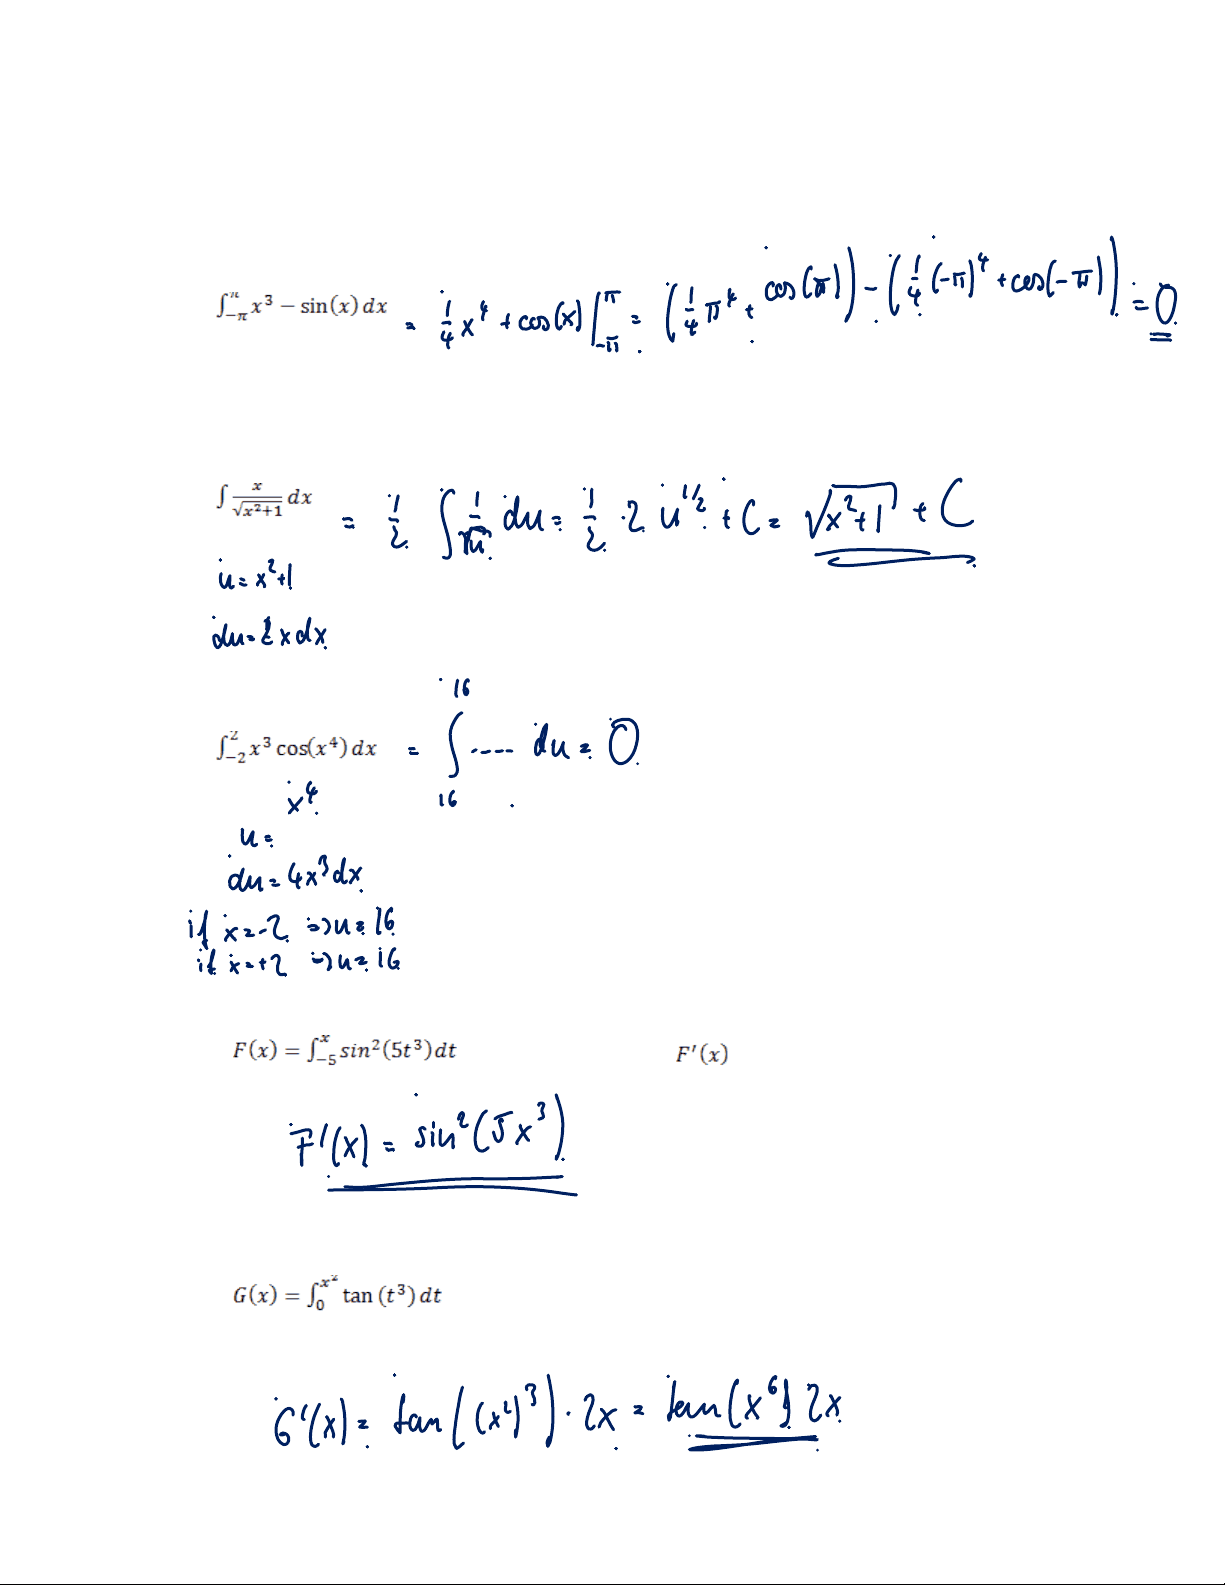 ∫_{-π}^{π} x³ − sin(x) dx = 1/4 x⁴ + cos(x) |_{-π}^{π} = (1/4 π⁴ + cos(π)) − (1/4 (-π)⁴ + cos(-π)) = 0
∫ x/√(x²+1) dx = 1/2 ∫ 1/√u du = 1/2 · 2 u^{1/2} + C = √(x²+1) + C
u = x²+1
du = 2x dx
∫_{-2}^{2} x³ cos(x⁴) dx = ∫_{16}^{16} ..... du = 0
x⁴
u =
du = 4x³ dx
if x = -2 ⇒ u = 16
if x = +2 ⇒ u = 16
F(x) = ∫_{-5}^{x} sin²(5t³) dt F′(x)
F'(x) = sin²(5x³)
G(x) = ∫_{0}^{x²} tan (t³) dt
G'(x) = tan((x²)³) · 2x = tan(x⁶) 2x